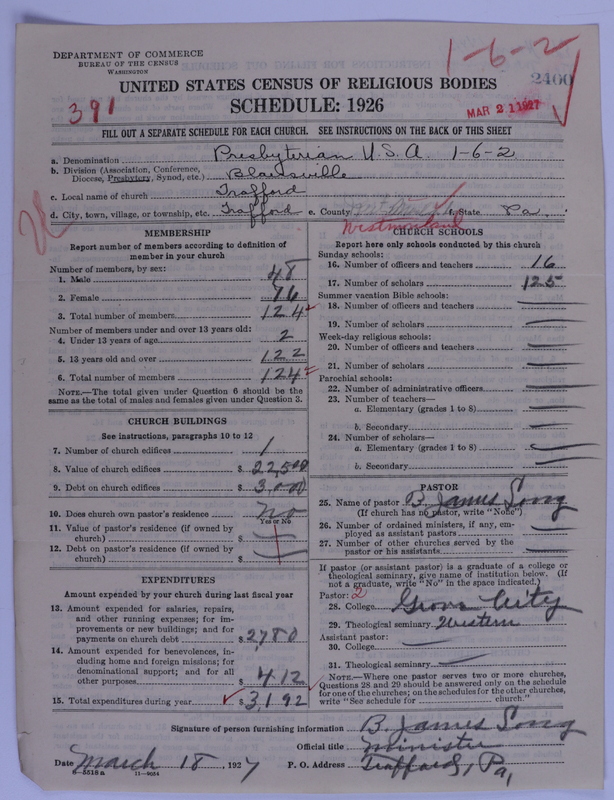 DEPARTMENT OF COMMERCE
BUREAU OF THE CENSUS
WASHINGTON
1-6-2
2400
UNITED STATES CENSUS OF RELIGIOUS BODIES
SCHEDULE: 1926
391
MAR 21 1927
FILL OUT A SEPARATE SCHEDULE FOR EACH CHURCH. SEE INSTRUCTIONS ON THE BACK OF THIS SHEET
a. Denomination Presbyterian U.S.A. 1-6-2
b. Division (Association, Conference, Diocese, Presbytery, Synod, etc.) Blairsville
c. Local name of church Trafford
d. City, town, village, or township, etc. Trafford e. County f. State Pa.
Westmoreland
MEMBERSHIP
Report number of members according to definition of member in your church
Number of members, by sex:
1. Male 48
2. Female 76
3. Total number of members 124
Number of members under and over 13 years old:
4. Under 13 years of age 2
5. 13 years old and over 122
6. Total number of members 124
NOTE.—The total given under Question 6 should be the same as the total of males and females given under Question 3.
CHURCH BUILDINGS
See instructions, paragraphs 10 to 12
7. Number of church edifices 1
8. Value of church edifices $22,500
9. Debt on church edifices $3,000
10. Does church own pastor's residence No
Yes or No
11. Value of pastor's residence (if owned by church) $
12. Debt on pastor's residence (if owned by church) $
EXPENDITURES
Amount expended by your church during last fiscal year
13. Amount expended for salaries, repairs, and other running expenses; for improvements or new buildings; and for payments on church debt $2,780
14. Amount expended for benevolences, including home and foreign missions; for denominational support; and for all other purposes $412
15. Total expenditures during year $3,192
CHURCH SCHOOLS
Report here only schools conducted by this church
Sunday schools:
16. Number of officers and teachers 16
17. Number of scholars 125
Summer vacation Bible schools:
18. Number of officers and teachers
19. Number of scholars
Week-day religious schools:
20. Number of officers and teachers
21. Number of scholars
Parochial schools:
22. Number of administrative officers
23. Number of teachers—
a. Elementary (grades 1 to 8)
b. Secondary
24. Number of scholars—
a. Elementary (grades 1 to 8)
b. Secondary
PASTOR
25. Name of pastor B. James Long
(If church has no pastor, write "None")
26. Number of ordained ministers, if any, employed as assistant pastors
27. Number of other churches served by the pastor or his assistants
If pastor (or assistant pastor) is a graduate of a college or theological seminary, give name of institution below. (If not a graduate, write "No" in the space indicated.)
Pastor: 2
28. College Grove City
29. Theological seminary Western
Assistant pastor:
30. College
31. Theological seminary
NOTE.—Where one pastor serves two or more churches, Questions 28 and 29 should be answered only on the schedule for one of the churches; on the schedules for the other churches, write "See schedule for church."
Signature of person furnishing information B. James Long
Official title Minister
Date March 18, 1927 P. O. Address Trafford, Pa,
6-5518 a 11-9054